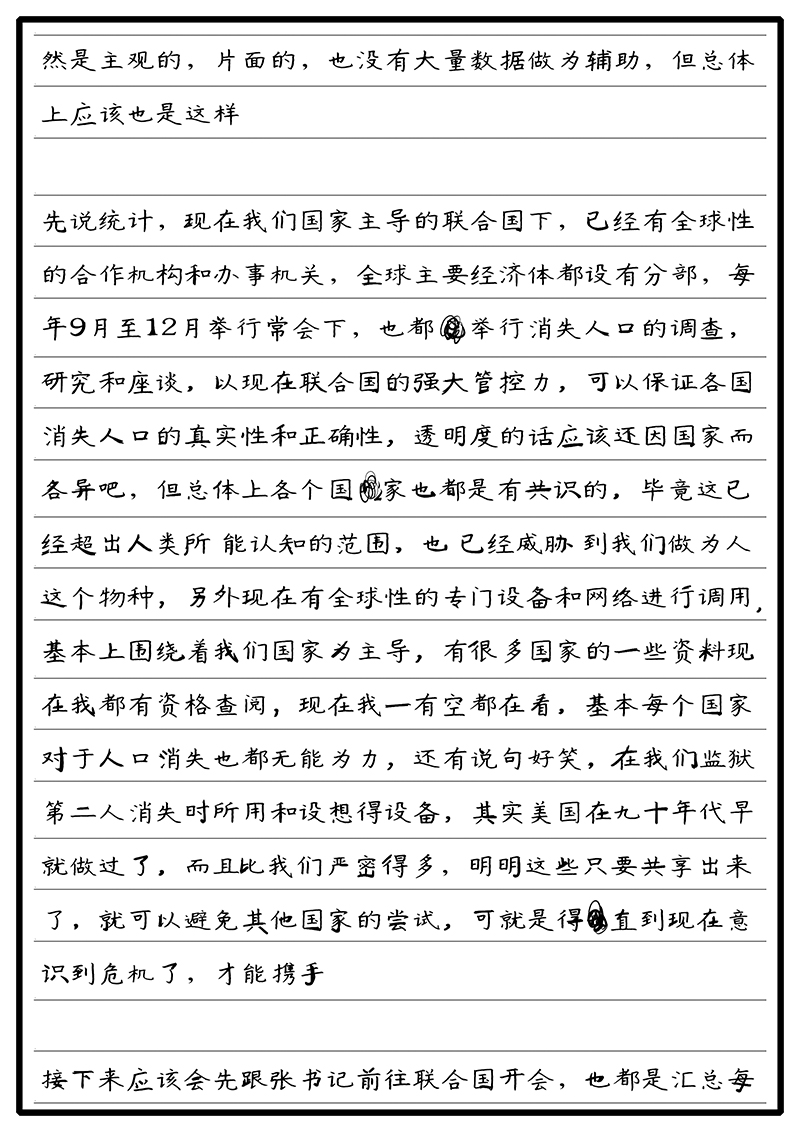 然是主观的，片面的，也没有大量数据做为辅助，但总体
上应该也是这样
先说统计，现在我们国家主导的联合国下，已经有全球性
的合作机构和办事机关，全球主要经济体都设有分部，每
年9月至12月举行常会下，也都举行消失人口的调查，
研究和座谈，以现在联合国的强大管控力，可以保证各国
消失人口的真实性和正确性，透明度的话应该还因国家而
各异吧，但总体上各个国家也都是有共识的，毕竟这已
经超出人类所 能认知的范围，也 已经威胁 到我们做为人
这个物种，另外现在有全球性的专门设备和网络进行调用，
基本上围绕着我们国家为主导，有很多国家的一些资料现
在我都有资格查阅，现在我一有空都在看，基本每个国家
对于人口消失也都无能为力，还有说句好笑，在我们监狱
第二人消失时所用和设想得设备，其实美国在九十年代早
就做过了，而且比我们严密得多，明明这些只要共享出来
了，就可以避免其他国家的尝试，可就是得直到现在意
识到危机了，才能携手
接下来应该会先跟张书记前往联合国开会，也都是汇总每